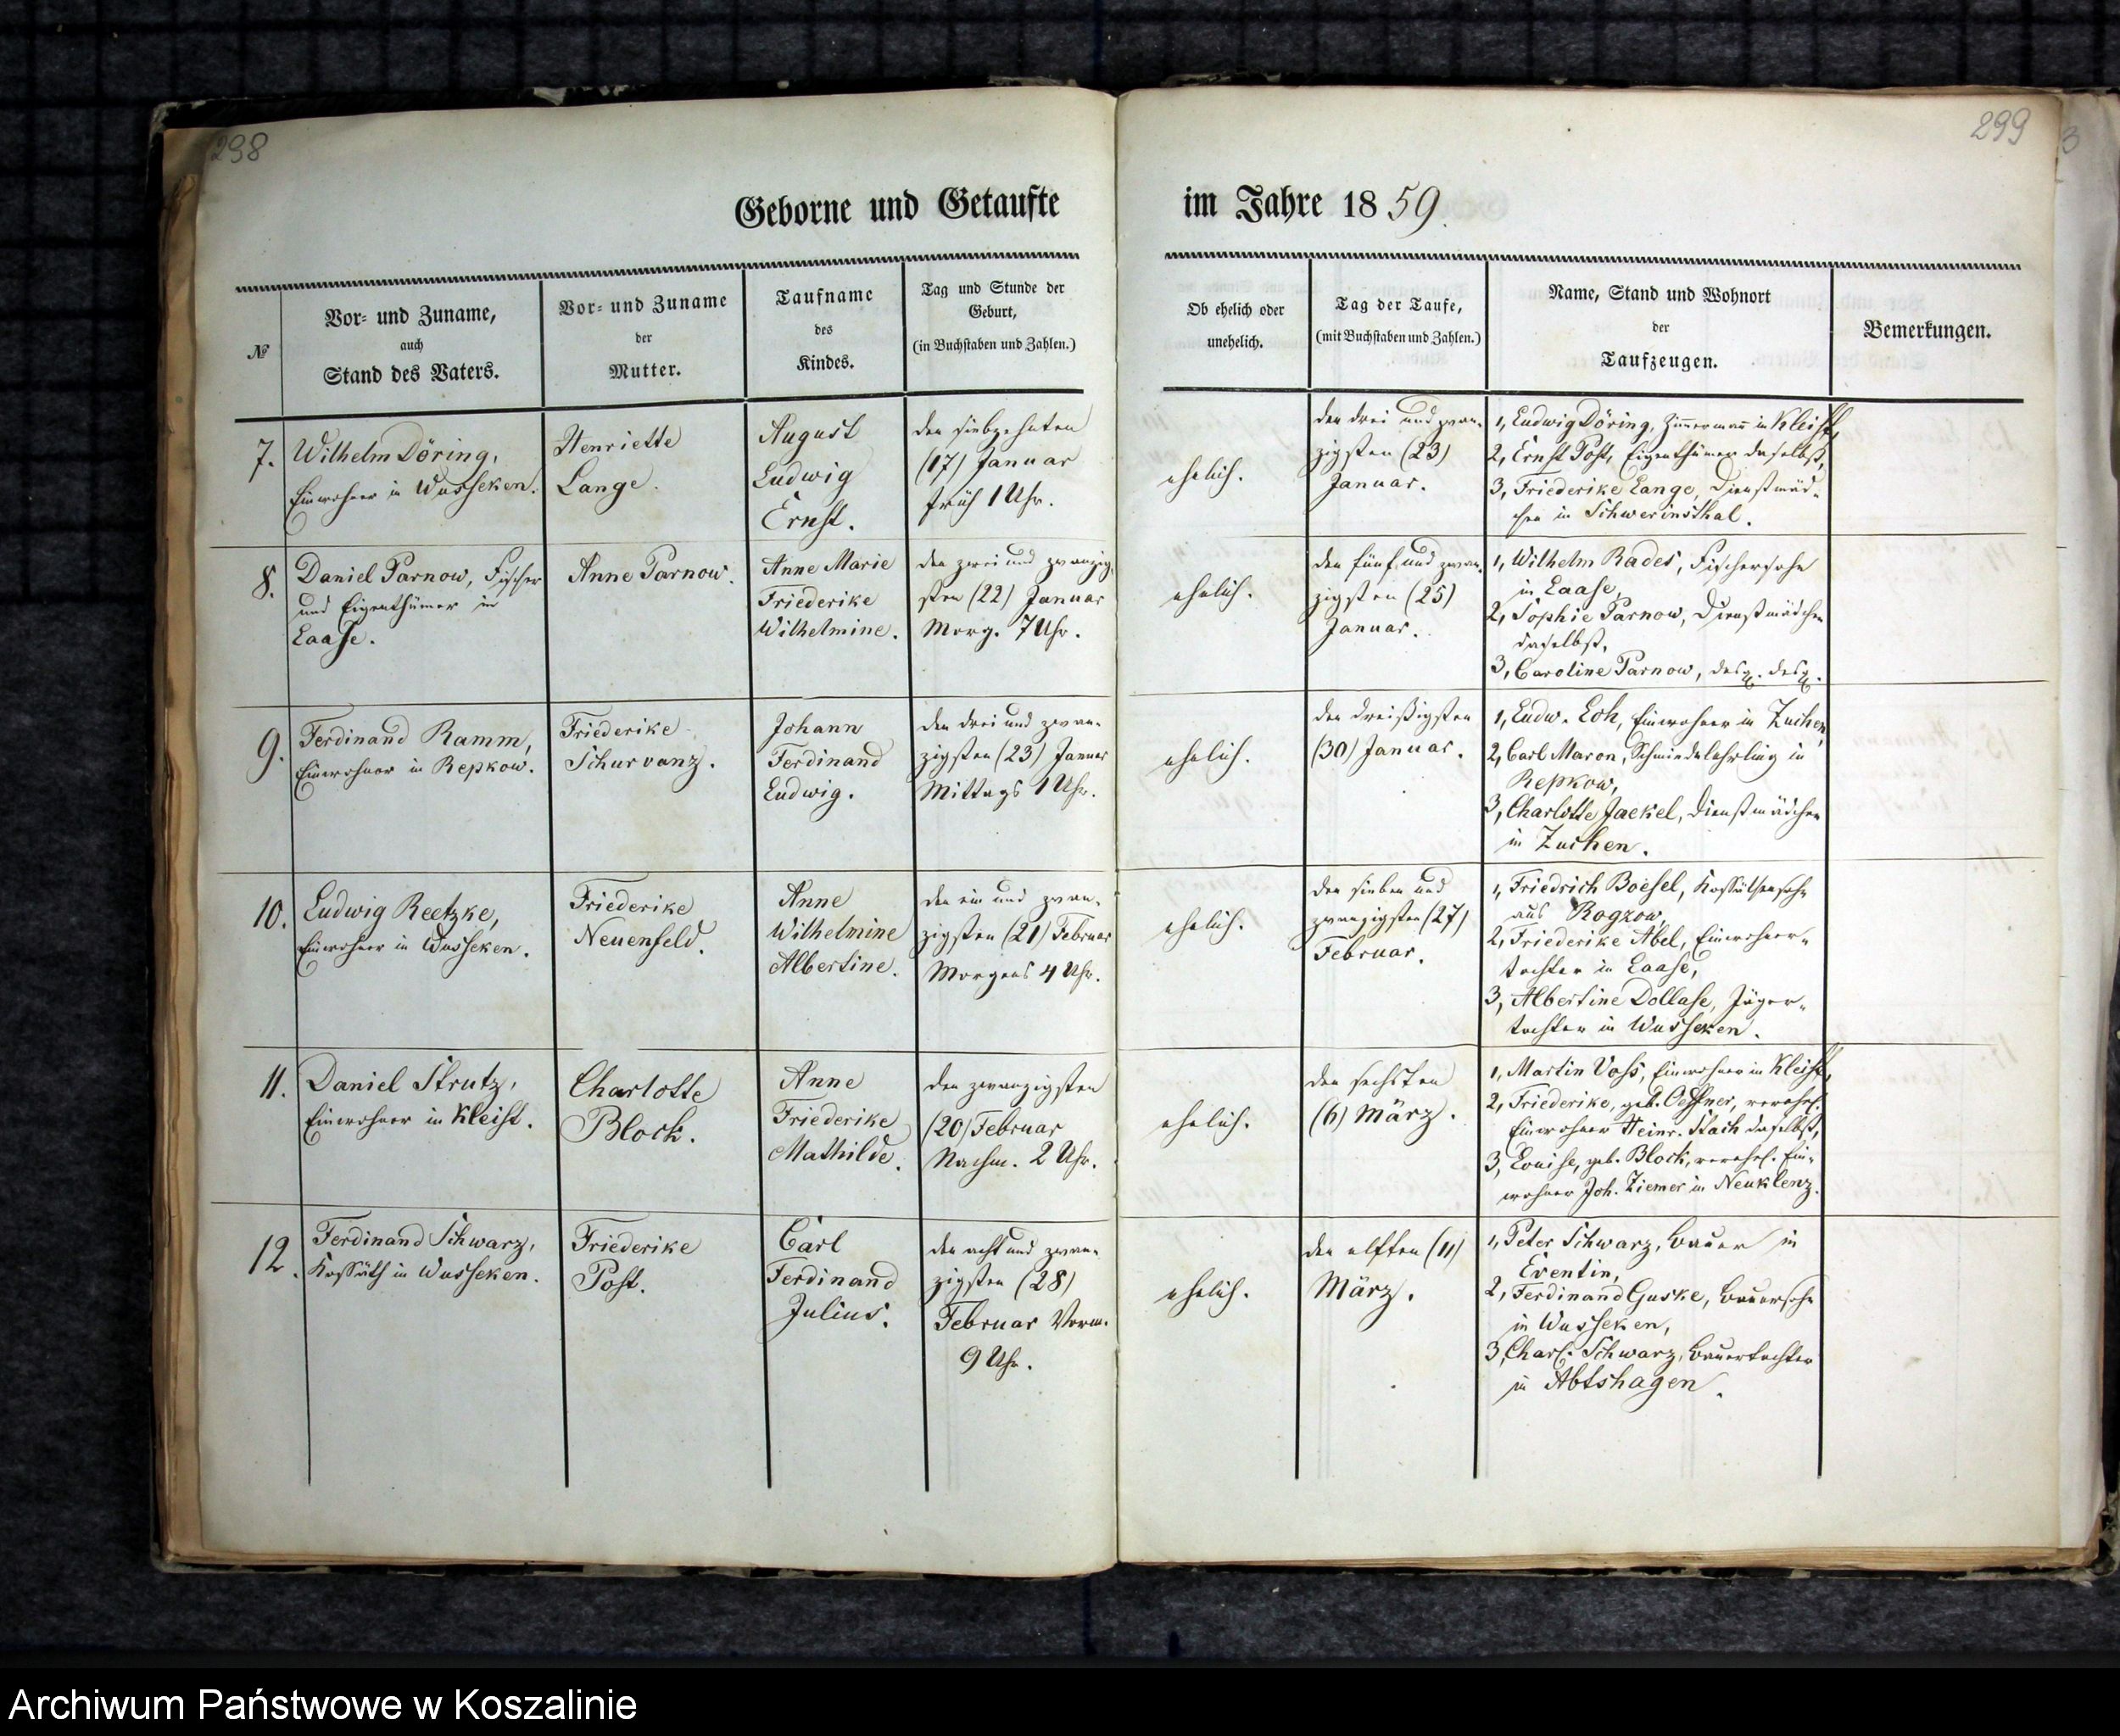 298
Geborne und Getaufte
№
Vor- und Zuname,
auch
Stand des Vaters.
Vor- und Zuname
der
Mutter.
Taufname
des
Kindes.
Tag und Stunde der
Geburt,
(in Buchstaben und Zahlen.)
7.
Wilhelm Döring,
Einwohner in Wusseken.
Henriette
Lange.
August
Ludwig
Ernst.
den siebzehnten
(17) Januar
früh 1 Uhr.
8.
Daniel Parnow, Fischer
und Eigenthümer in
Laase.
Anne Parnow.
Anne Marie
Friederike
Wilhelmine.
den zwei und zwanzig-
sten (22) Januar
Morg. 7 Uhr.
9.
Ferdinand Ramm,
Einwohner in Repkow.
Friederike
Schurvanz.
Johann
Ferdinand
Ludwig.
den drei und zwan-
zigsten (23) Januar
Mittags 1 Uhr.
10.
Ludwig Reetzke,
Einwohner in Wusseken.
Friederike
Neuenfeld.
Anne
Wilhelmine
Albertine.
den ein und zwan-
zigsten (21) Februar
Morgens 4 Uhr.
11.
Daniel Strutz,
Einwohner in Kleist.
Charlotte
Block.
Anne
Friederike
Mathilde.
den zwanzigsten
(20) Februar
Nachm. 2 Uhr.
12.
Ferdinand Schwarz,
Kossäth in Wusseken.
Friederike
Post.
Carl
Ferdinand
Julius.
den acht und zwan-
zigsten (28)
Februar Vorm.
9 Uhr.
299
3
im Jahre 1859.
Ob ehelich oder
unehelich.
Tag der Taufe,
(mit Buchstaben und Zahlen.)
Name, Stand und Wohnort
der
Taufzeugen.
Bemerkungen.
ehelich.
den drei und zwan-
zigsten (23)
Januar.
1, Ludwig Döring, Zimmermann in Kleist,
2, Ernst Post, Eigenthümer daselbst,
3, Friederike Lange, Dienstmäd-
chen in Schwerinsthal.
ehelich.
den fünf und zwan-
zigsten (25)
Januar.
1, Wilhelm Rades, Fischersohn
in Laase,
2, Sophie Parnow, Dienstmädchen
daselbst,
3, Caroline Parnow, desgl. desgl.
ehelich.
den dreißigsten
(30) Januar.
1, Ludw. Loh, Einwohner in Zuchen,
2, Carl Maron, Schmiedelehrling in
Repkow,
3, Charlotte Jaekel, Dienstmädchen
in Zuchen.
ehelich.
den sieben und
zwanzigsten (27)
Februar.
1, Friedrich Boesel, Kossäthensohn
aus Rogzow,
2, Friederike Abel, Einwohner-
tochter in Laase,
3, Albertine Dollase, Jäger-
tochter in Wusseken.
ehelich.
den sechsten
(6) März.
1, Martin Voss, Einwohner in Kleist,
2, Friederike, geb. verehel.
Einwohner Heinr. Stach daselbst,
3, Louise, geb. Block, verehel. Ein-
wohner Joh. Ziemer in Neuklenz.
ehelich.
den elften (11)
März.
1, Peter Schwarz, Bauer in
Eventin,
2, Ferdinand Guske, Bauersohn
in Wusseken,
3, Charl. Schwarz, Bauertochter
in Abtshagen.
Archiwum Państwowe w Koszalinie